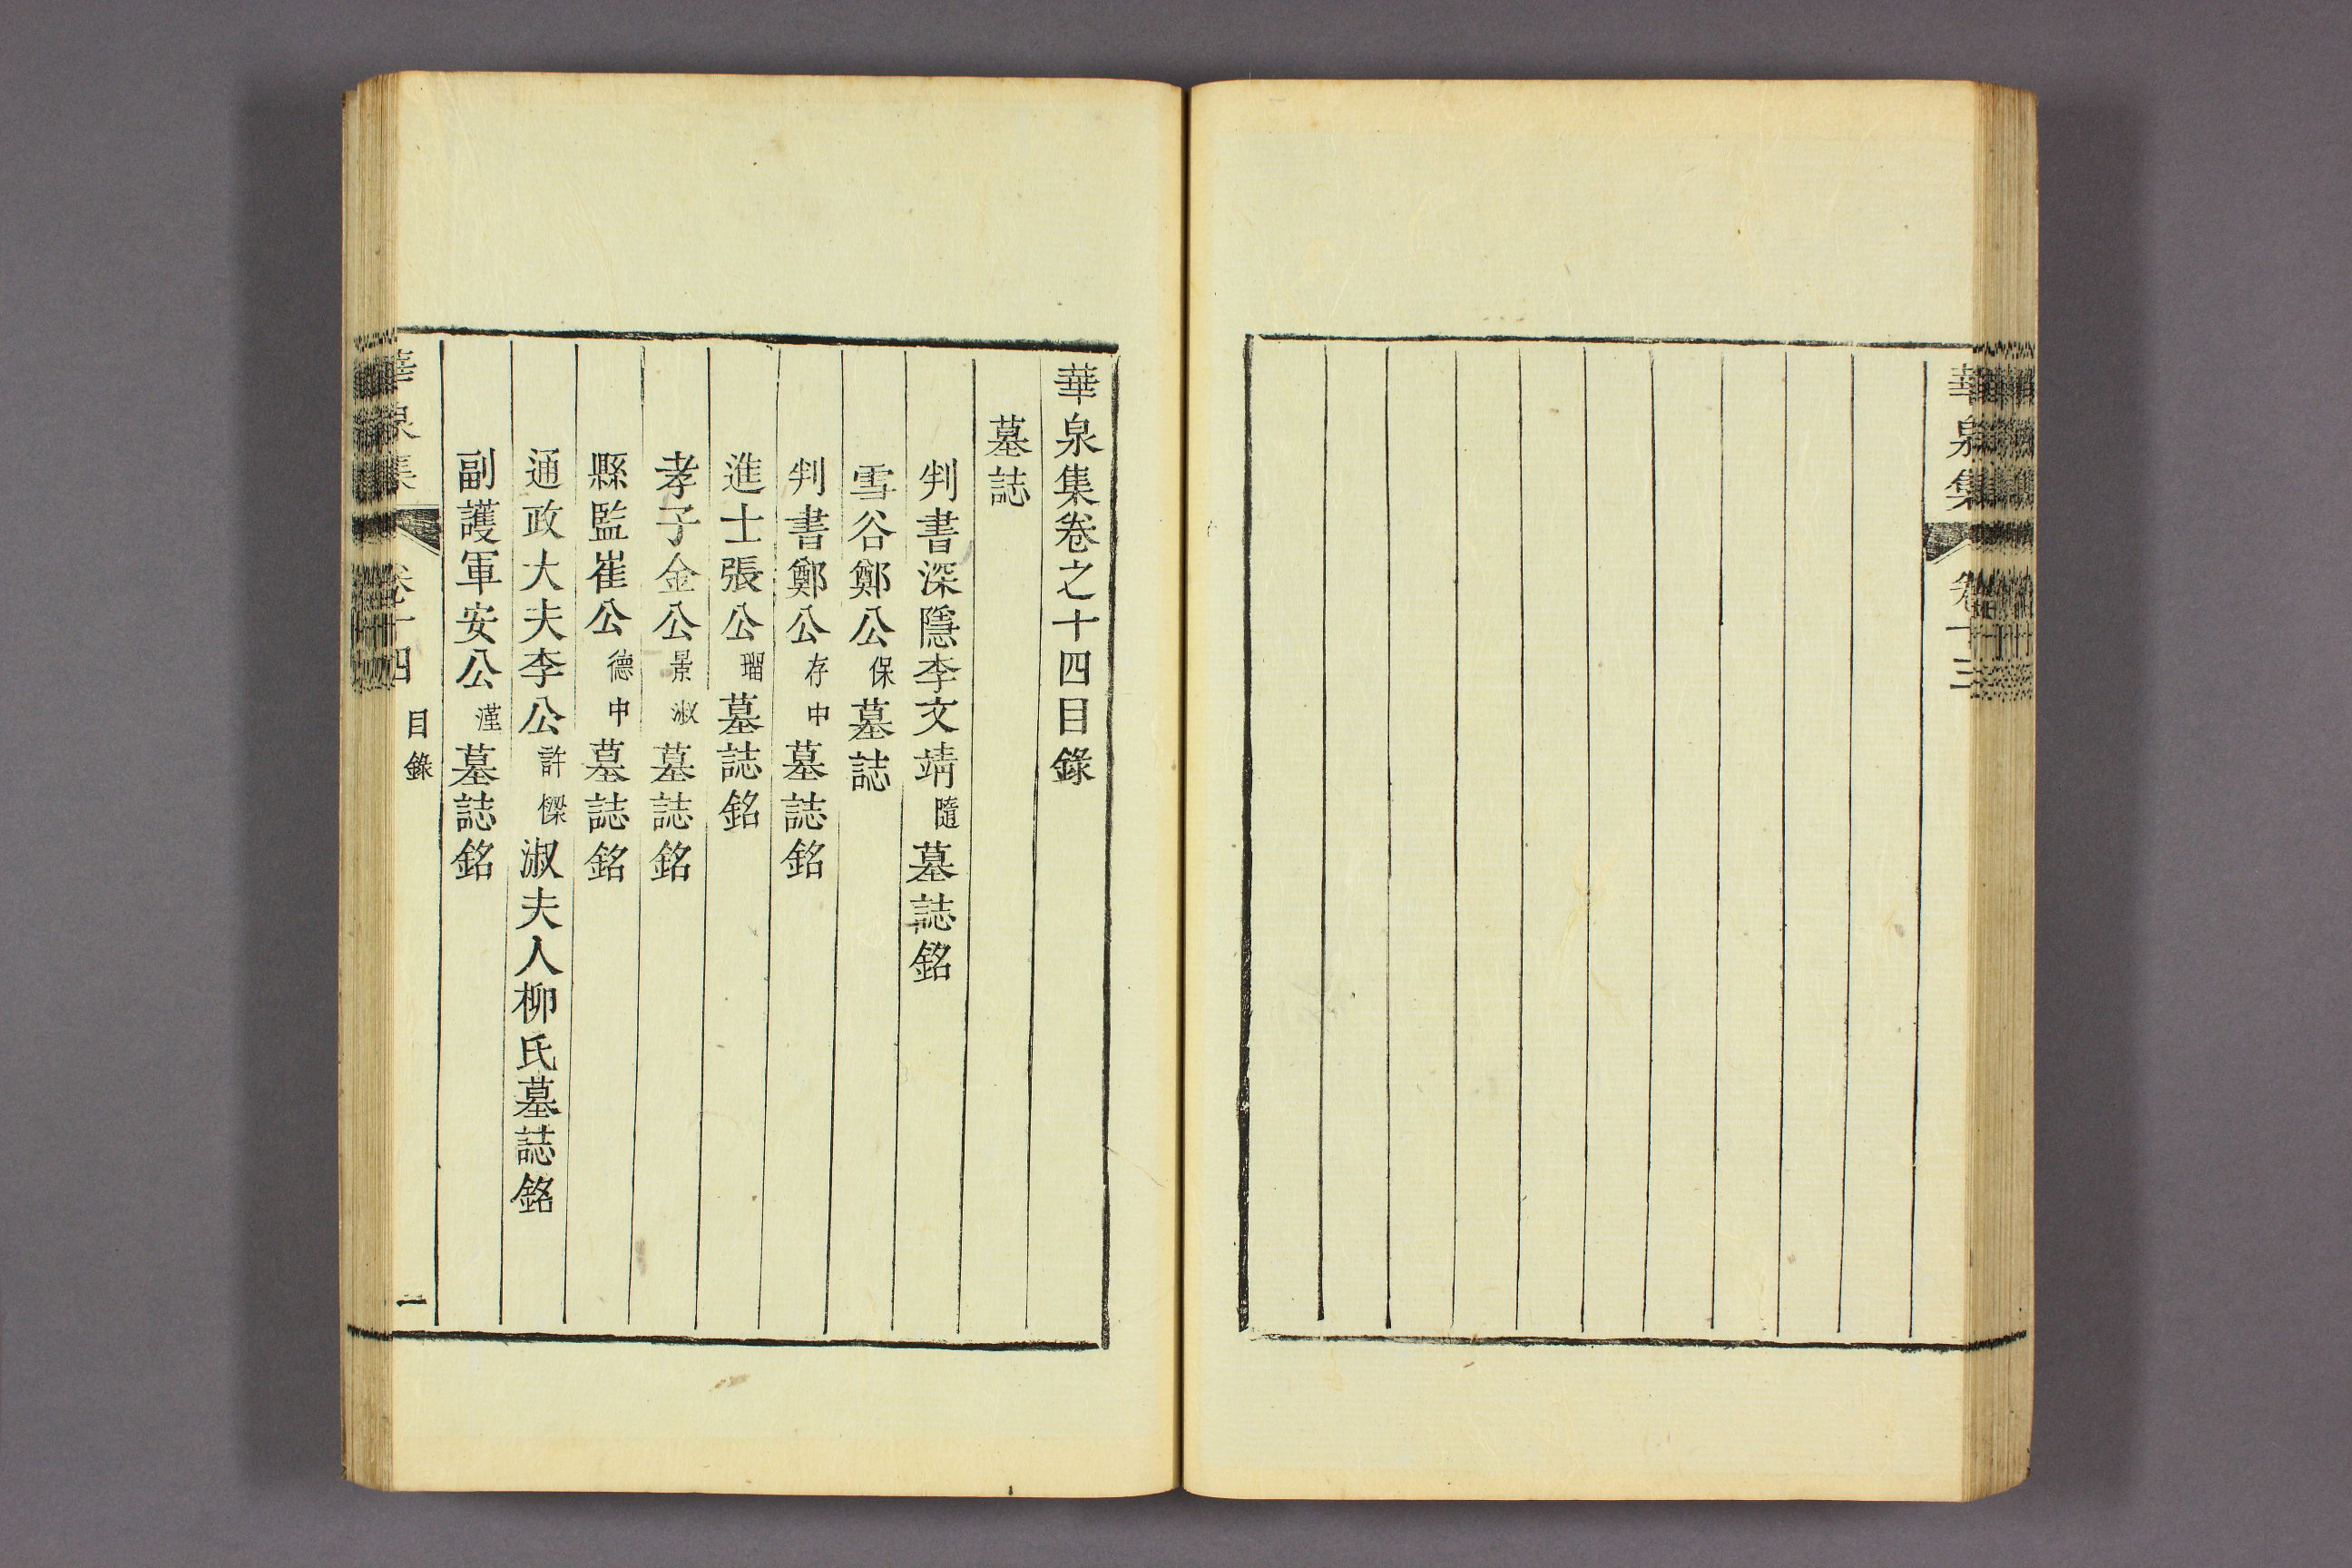 華泉集 卷十三
華泉集卷之十四目錄
墓誌
判書深隱李文靖隨墓誌銘
雪谷鄭公保墓誌
判書鄭公存中墓誌銘
進士張公瑠墓誌銘
孝子金公景淑墓誌銘
縣監崔公德中墓誌銘
通政大夫李公許樑淑夫人柳氏墓誌銘
副護軍安公漌墓誌銘
華泉集 卷十四 目錄 一